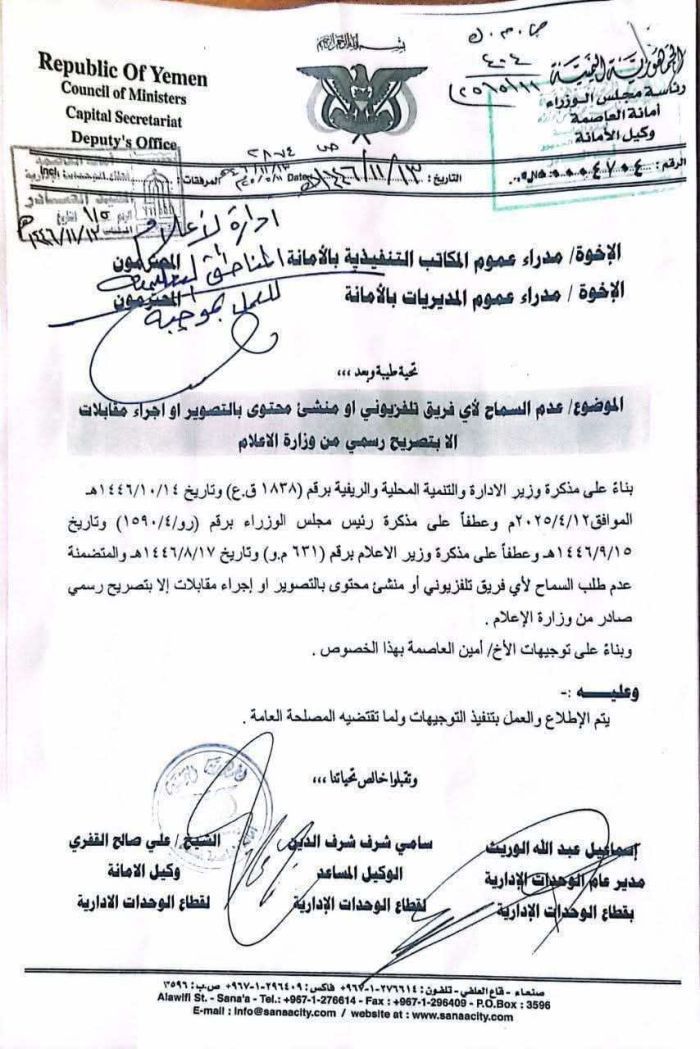 بسم الله الرحمن الرحيم
Republic Of Yemen
Council of Ministers
Capital Secretariat
Deputy's Office
الجمهورية اليمنية
رئاسة مجلس الوزراء
أمانة العاصمة
وكيل الأمانة
الرقم :
التاريخ : ١٤٤٦/١١/١٣ Date
المرفقات :
١٤٤٦/١١/١٣
ادارة الإعلام
المناطق التعليمية
للعمل بموجبه
الإخوة/ مدراء عموم المكاتب التنفيذية بالأمانة المحترمون
الإخوة / مدراء عموم المديريات بالأمانة المحترمون
تحية طيبة وبعد ,,,
الموضوع/ عدم السماح لأي فريق تلفزيوني او منشئ محتوى بالتصوير او اجراء مقابلات
الا بتصريح رسمي من وزارة الاعلام
بناءً على مذكرة وزير الادارة والتنمية المحلية والريفية برقم (١٨٣٨ ق.ع) وتاريخ ١٤٤٦/١٠/١٤هـ
الموافق٢٠٢٥/٤/١٢م وعطفاً على مذكرة رئيس مجلس الوزراء برقم (رو/١٥٩٠/٤) وتاريخ
١٤٤٦/٩/١٥هـ وعطفاً على مذكرة وزير الاعلام برقم (٦٣١ م.و) وتاريخ ١٤٤٦/٨/١٧هـ والمتضمنة
عدم طلب السماح لأي فريق تلفزيوني أو منشئ محتوى بالتصوير او إجراء مقابلات إلا بتصريح رسمي
صادر من وزارة الإعلام .
وبناءً على توجيهات الأخ/ أمين العاصمة بهذا الخصوص .
وعليـــه :-
يتم الإطلاع والعمل بتنفيذ التوجيهات ولما تقتضيه المصلحة العامة .
وتقبلوا خالص تحياتنا ,,,
إسماعيل عبد الله الوريث
مدير عام الوحدات الإدارية
بقطاع الوحدات الإدارية
سامي شرف شرف الدين
الوكيل المساعد
لقطاع الوحدات الإدارية
الشيخ / علي صالح القفري
وكيل الامانة
لقطاع الوحدات الادارية
صنعاء - قاع العلفي - تلفون : ٢٧٦٦١٤-١-٩٦٧+ فاكس : ٢٩٦٤٠٩-١-٩٦٧+ ص.ب : ٣٥٩٦
Alawlfi St. - Sana'a - Tel.: +967-1-276614 - Fax : +967-1-296409 - P.O.Box : 3596
E-mail : Info@sanaacity.com / website at : www.sanaacity.com